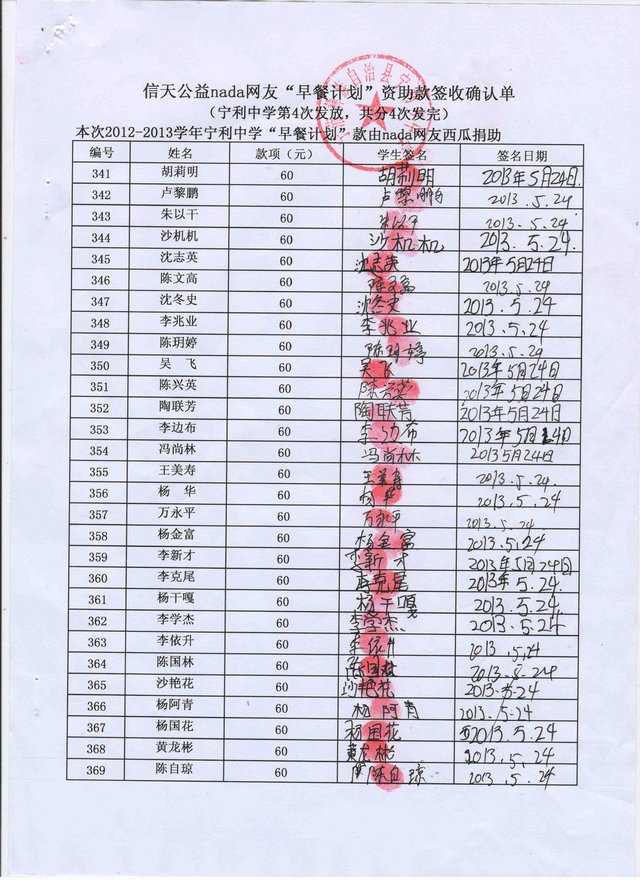 信天公益nada网友“早餐计划”资助款签收确认单
（宁利中学第4次发放，共分4次发完）
本次2012-2013学年宁利中学“早餐计划”款由nada网友西瓜捐助
编号 姓名 款项（元） 学生签名 签名日期
341 胡莉明 60 胡莉明 2013年5月24日
342 卢黎鹏 60 卢黎鹏 2013.5.24
343 朱以干 60 朱以干 2013.5.24
344 沙机机 60 沙机机 2013.5.24
345 沈志英 60 沈志英 2013年5月24日
346 陈文高 60 陈文高 2013.5.24
347 沈冬史 60 沈冬史 2013.5.24
348 李兆业 60 李兆业 2013.5.24
349 陈玥婷 60 陈玥婷 2013.5.24
350 吴 飞 60 吴飞 2013年5月24日
351 陈兴英 60 陈兴英 2013年5月24日
352 陶联芳 60 陶联芳 2013年5月24日
353 李边布 60 李边布 2013年5月24日
354 冯尚林 60 冯尚林 2013年5月24日
355 王美寿 60 王美寿 2013.5.24
356 杨 华 60 2013.5.24
357 万永平 60 万永平 2013.5.24
358 杨金富 60 杨金富 2013.5.24
359 李新才 60 李新才 2013年5月24日
360 李克尾 60 李克尾 2013年5.24
361 杨干嘎 60 杨干嘎 2013.5.24
362 李学杰 60 李学杰 2013.5.24
363 李依升 60 李依升 2013.5.24
364 陈国林 60 陈国林 2013.5.24
365 沙艳花 60 沙艳花 2013.5.24
366 杨阿青 60 杨阿青 2013.5.24
367 杨国花 60 杨国花 2013.5.24
368 黄龙彬 60 黄龙彬 2013.5.24
369 陈自琼 60 陈自琼 2013.5.24